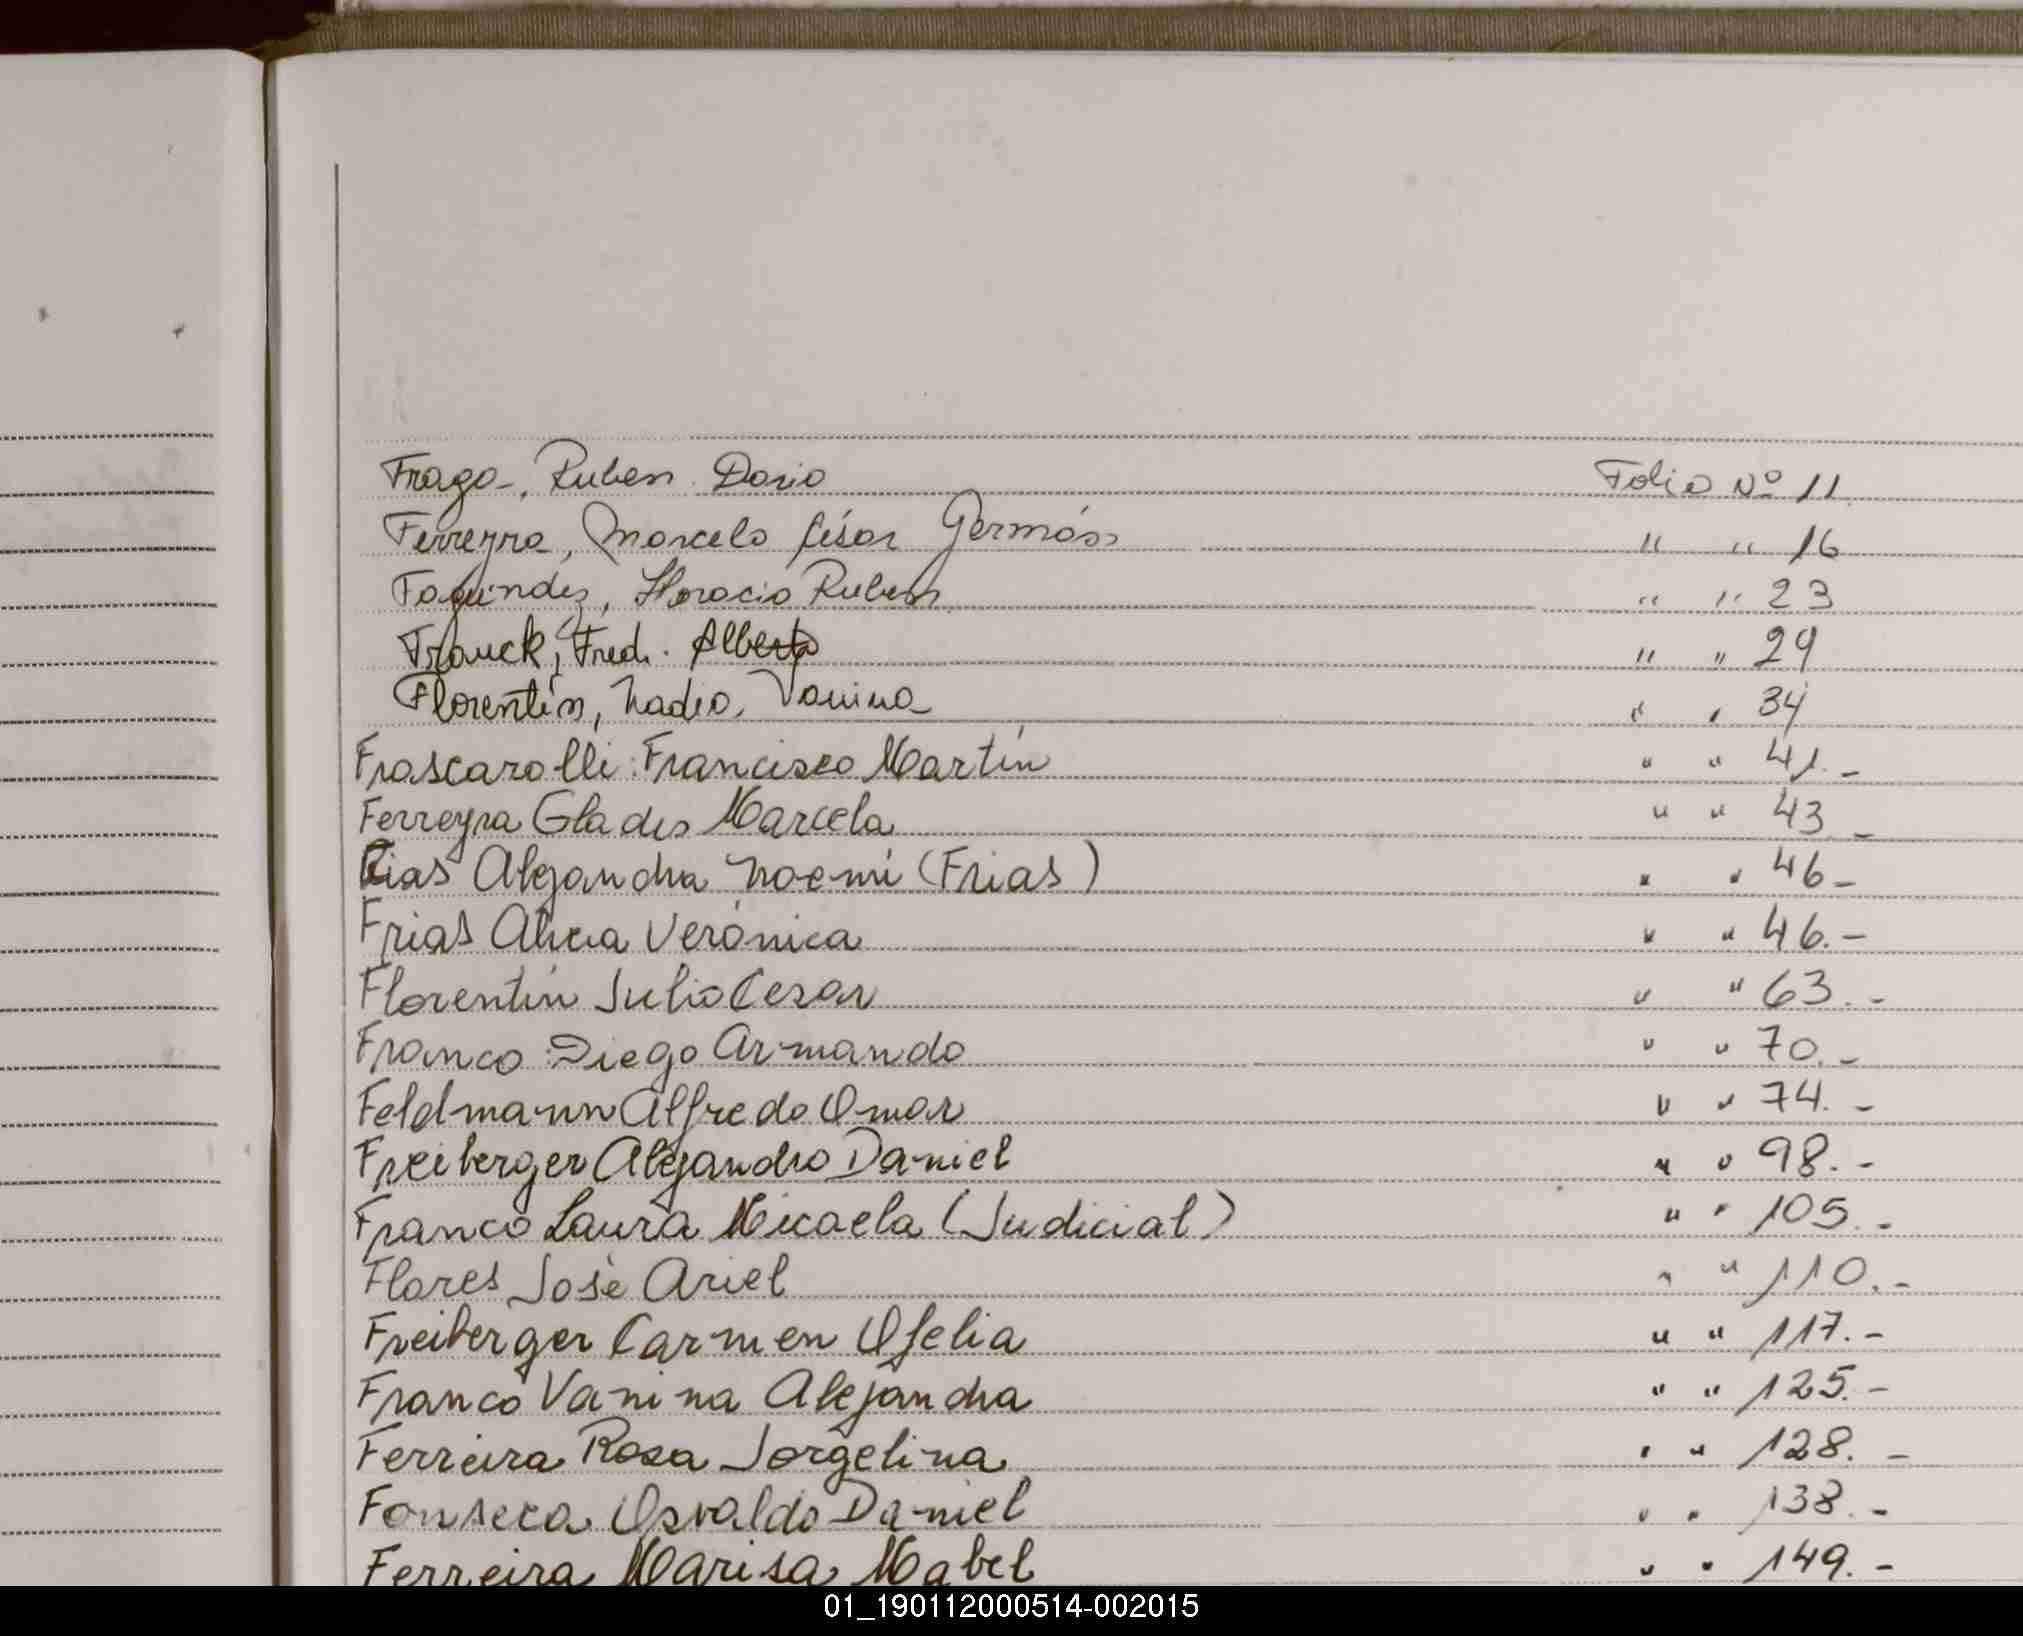 Frago, Ruben Dario Folio Nº 11
Ferreyra, Marcelo César Germán " " 16
Fagundez, Horacio Ruben " " 23
Franck, Fred. Alberto " " 29
Florentín, Nadia, Vanina " " 34
Frascarolli: Francisco Martín " " 41.-
Ferreyra Glades Marcela " " 43-
Cias Alejandra Noemí (Frias) " " 46-
Frias Alicia Verónica " " 46.-
Florentín Julio Cesar " " 63.-
Franco: Diego Armando " " 70.-
Feldmann Alfredo Omar " " 74.-
Freiberger Alejandro Daniel " " 98.-
Franco Laura Micaela (Judicial) " " 105.-
Flores José Ariel " " 110.-
Freiberger Carmen Ofelia " " 117.-
Franco Vanina Alejandra " " 125.-
Ferreira Rosa Jorgelina " " 128.-
Fonseca Osvaldo Daniel " " 138.-
Ferreira Marisa Mabel " " 149.-
01_190112000514-002015